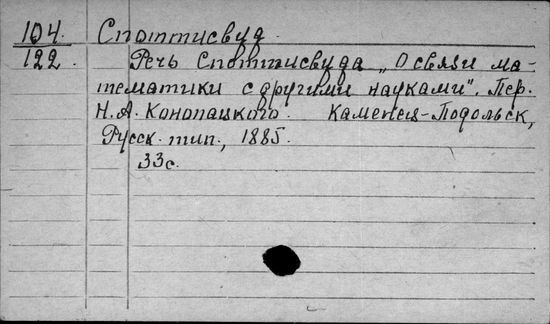 104. Споттисвуд.
122. Речь Споттисвуда „О связи ма-
тематики с другими науками". Пер.
Н.А. Конопацкого. Каменец-Подольск,
Русск. тип., 1885.
33с.